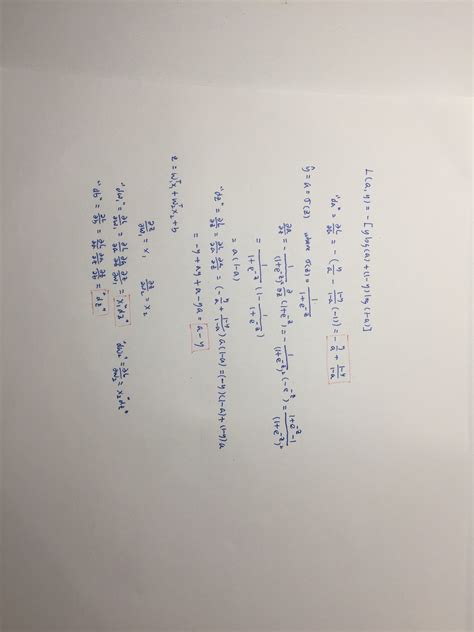 L(a,y) = -[y log(a) + (1-y) log(1-a)]
"da" = ∂L/∂a = -(y/a - (1-y)/(1-a) (-1)) = -y/a + (1-y)/(1-a)
ŷ = a = σ(z) where σ(z) = 1/(1+e^-z)
∂a/∂z = -1/(1+e^-z)² ∂/∂z (1+e^-z) = -1/(1+e^-z)² (-e^-z) = (1+e^-z-1)/(1+e^-z)²
= 1/(1+e^-z) (1 - 1/(1+e^-z))
= a(1-a)
"dz" = ∂L/∂z = ∂L/∂a ∂a/∂z = (-y/a + (1-y)/(1-a)) a(1-a) = (-y)(1-a) + (1-y)a
= -y + ay + a - ya = a - y
z = w₁ᵀx₁ + w₂ᵀx₂ + b
∂z/∂w₁ = x₁ ∂z/∂w₂ = x₂
"dw₁" = ∂L/∂w₁ = ∂L/∂a ∂a/∂z ∂z/∂w₁ = x₁"dz" "dw₂" = ∂L/∂w₂ = x₂"dz"
"db" = ∂L/∂b = ∂L/∂a ∂a/∂z ∂z/∂b = "dz"